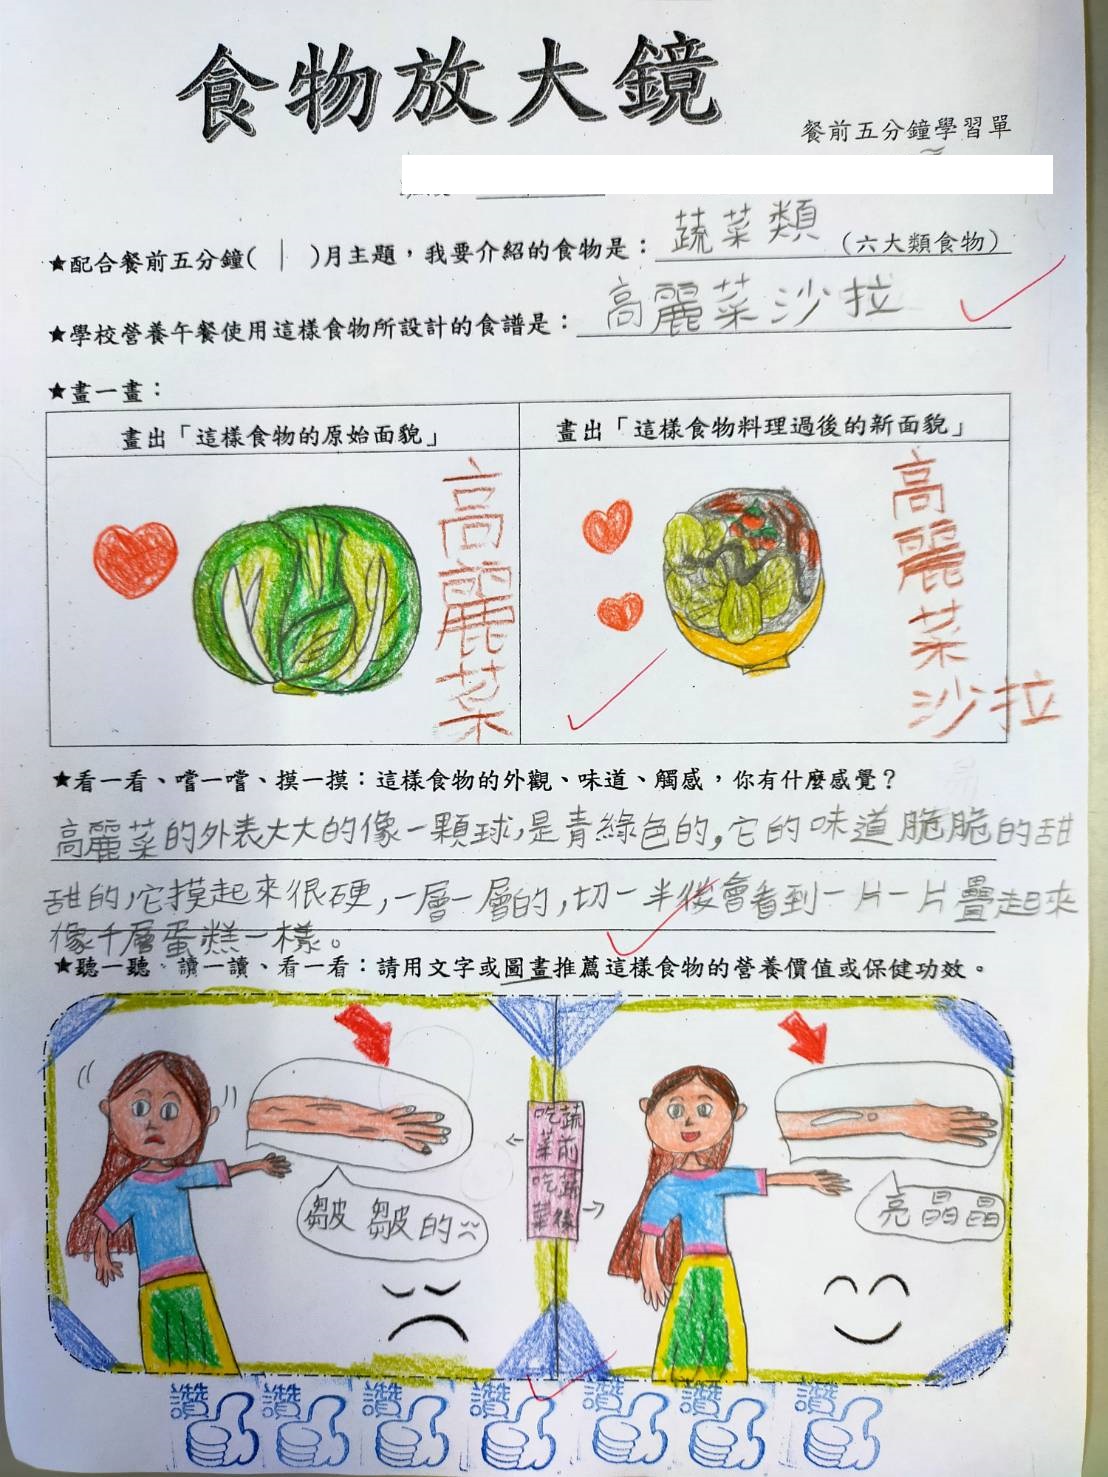 食物放大鏡
餐前五分鐘學習單
★配合餐前五分鐘( | )月主題，我要介紹的食物是：蔬菜類（六大類食物）
★學校營養午餐使用這樣食物所設計的食譜是：高麗菜沙拉
★畫一畫：
畫出「這樣食物的原始面貌」
畫出「這樣食物料理過後的新面貌」
高麗菜
高麗菜沙拉
★看一看、嚐一嚐、摸一摸：這樣食物的外觀、味道、觸感，你有什麼感覺？
高麗菜的外表大大的像一顆球，是青綠色的，它的味道脆脆的甜
甜的，它摸起來很硬，一層一層的，切一半後會看到一片一片疊起來
像千層蛋糕一樣。
★聽一聽、讀一讀、看一看：請用文字或圖畫推薦這樣食物的營養價值或保健功效。
吃蔬菜前
吃蔬菜後
皺皺的
亮晶晶
讚 讚 讚 讚 讚 讚 讚